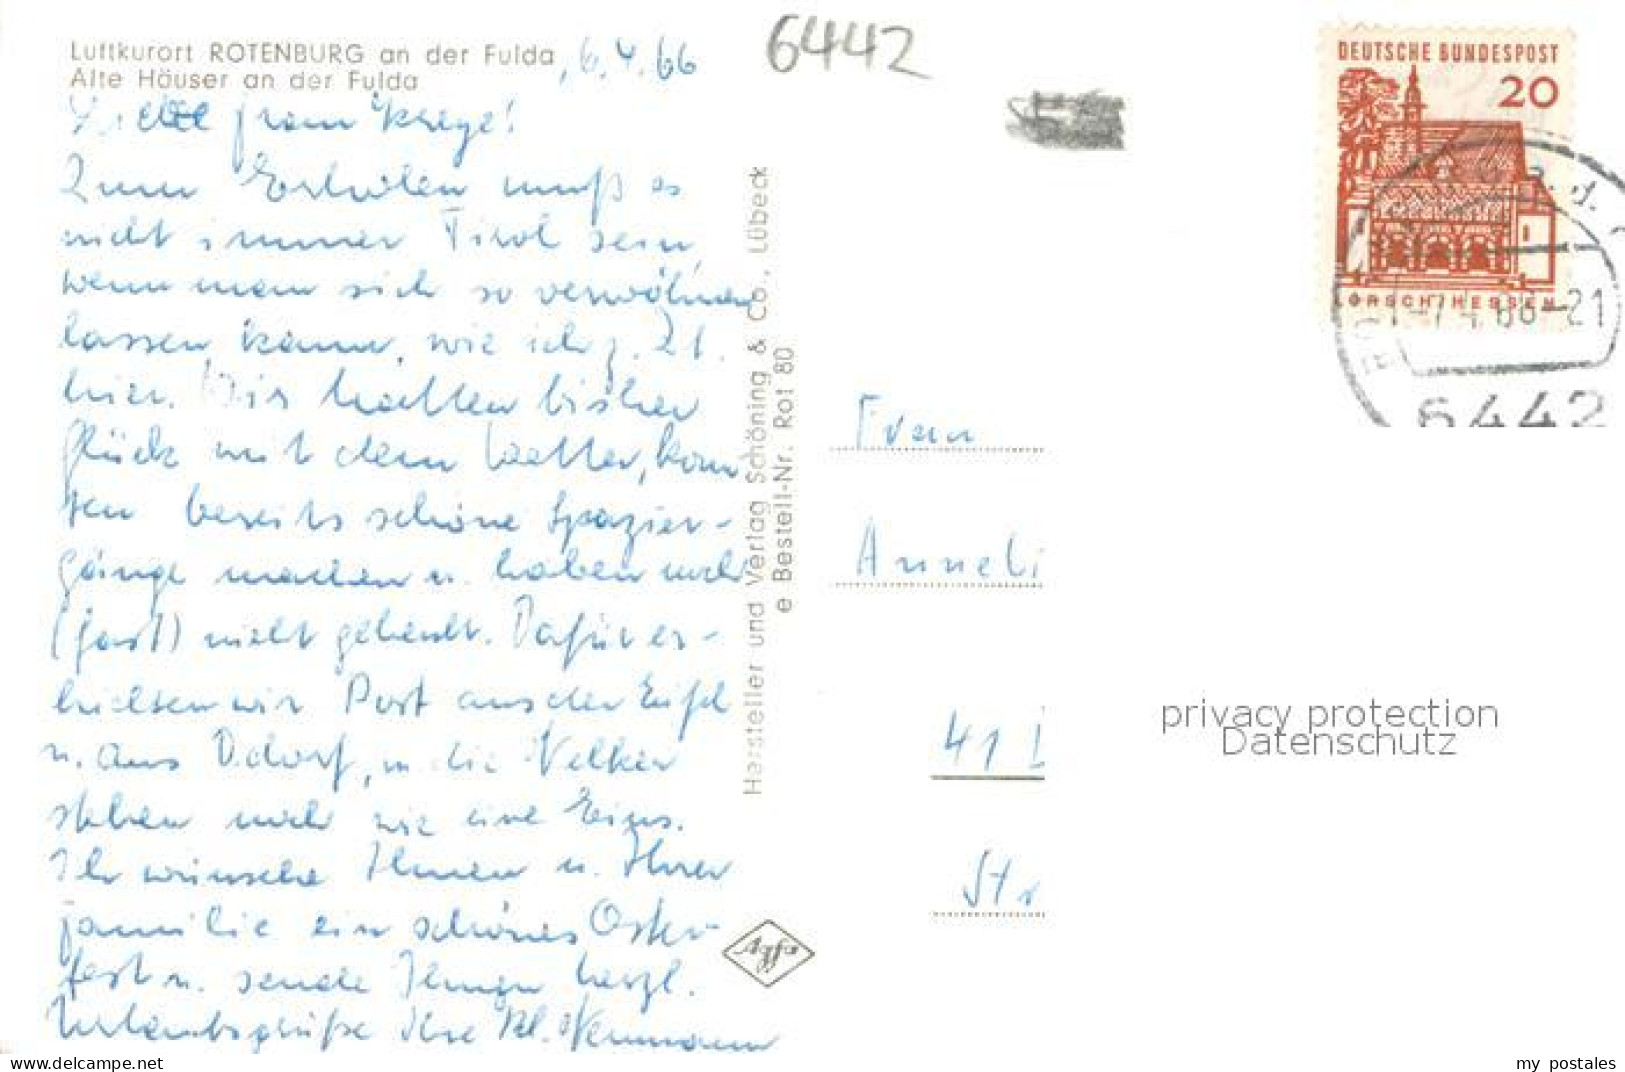 Luftkurort ROTENBURG an der Fulda
Alte Häuser an der Fulda
, 6.4.66
6442
Liebe Frau Krege!
Zum Erholen muß es
nicht immer Tirol sein,
wenn man sich so verwöhnen
lassen kann, wie ich z. Zt.
hier. Wir hatten bisher
Glück mit dem Wetter, konn
ten bereits schöne Spazier-
gänge machen u. haben noch
(fast) nicht geheult. Dafür er-
hielten wir Post aus der Eifel
u. aus Ddorf, die Nelken
stehen noch wie eine Eins.
Ich wünsche Ihnen u. Ihrer
Familie ein schönes Oster-
fest u. sende Ihnen herzl.
Urlaubsgrüße Ihre Neumann
Hersteller und Verlag Schöning & Co., Lübeck
e Bestell-Nr. Rot 80
Agfa
DEUTSCHE BUNDESPOST
20
LORSCH/HESSEN
-7.4.66-21
6442
Frau
Anneli
41
Str
privacy protection
Datenschutz
www.delcampe.net
my_postales